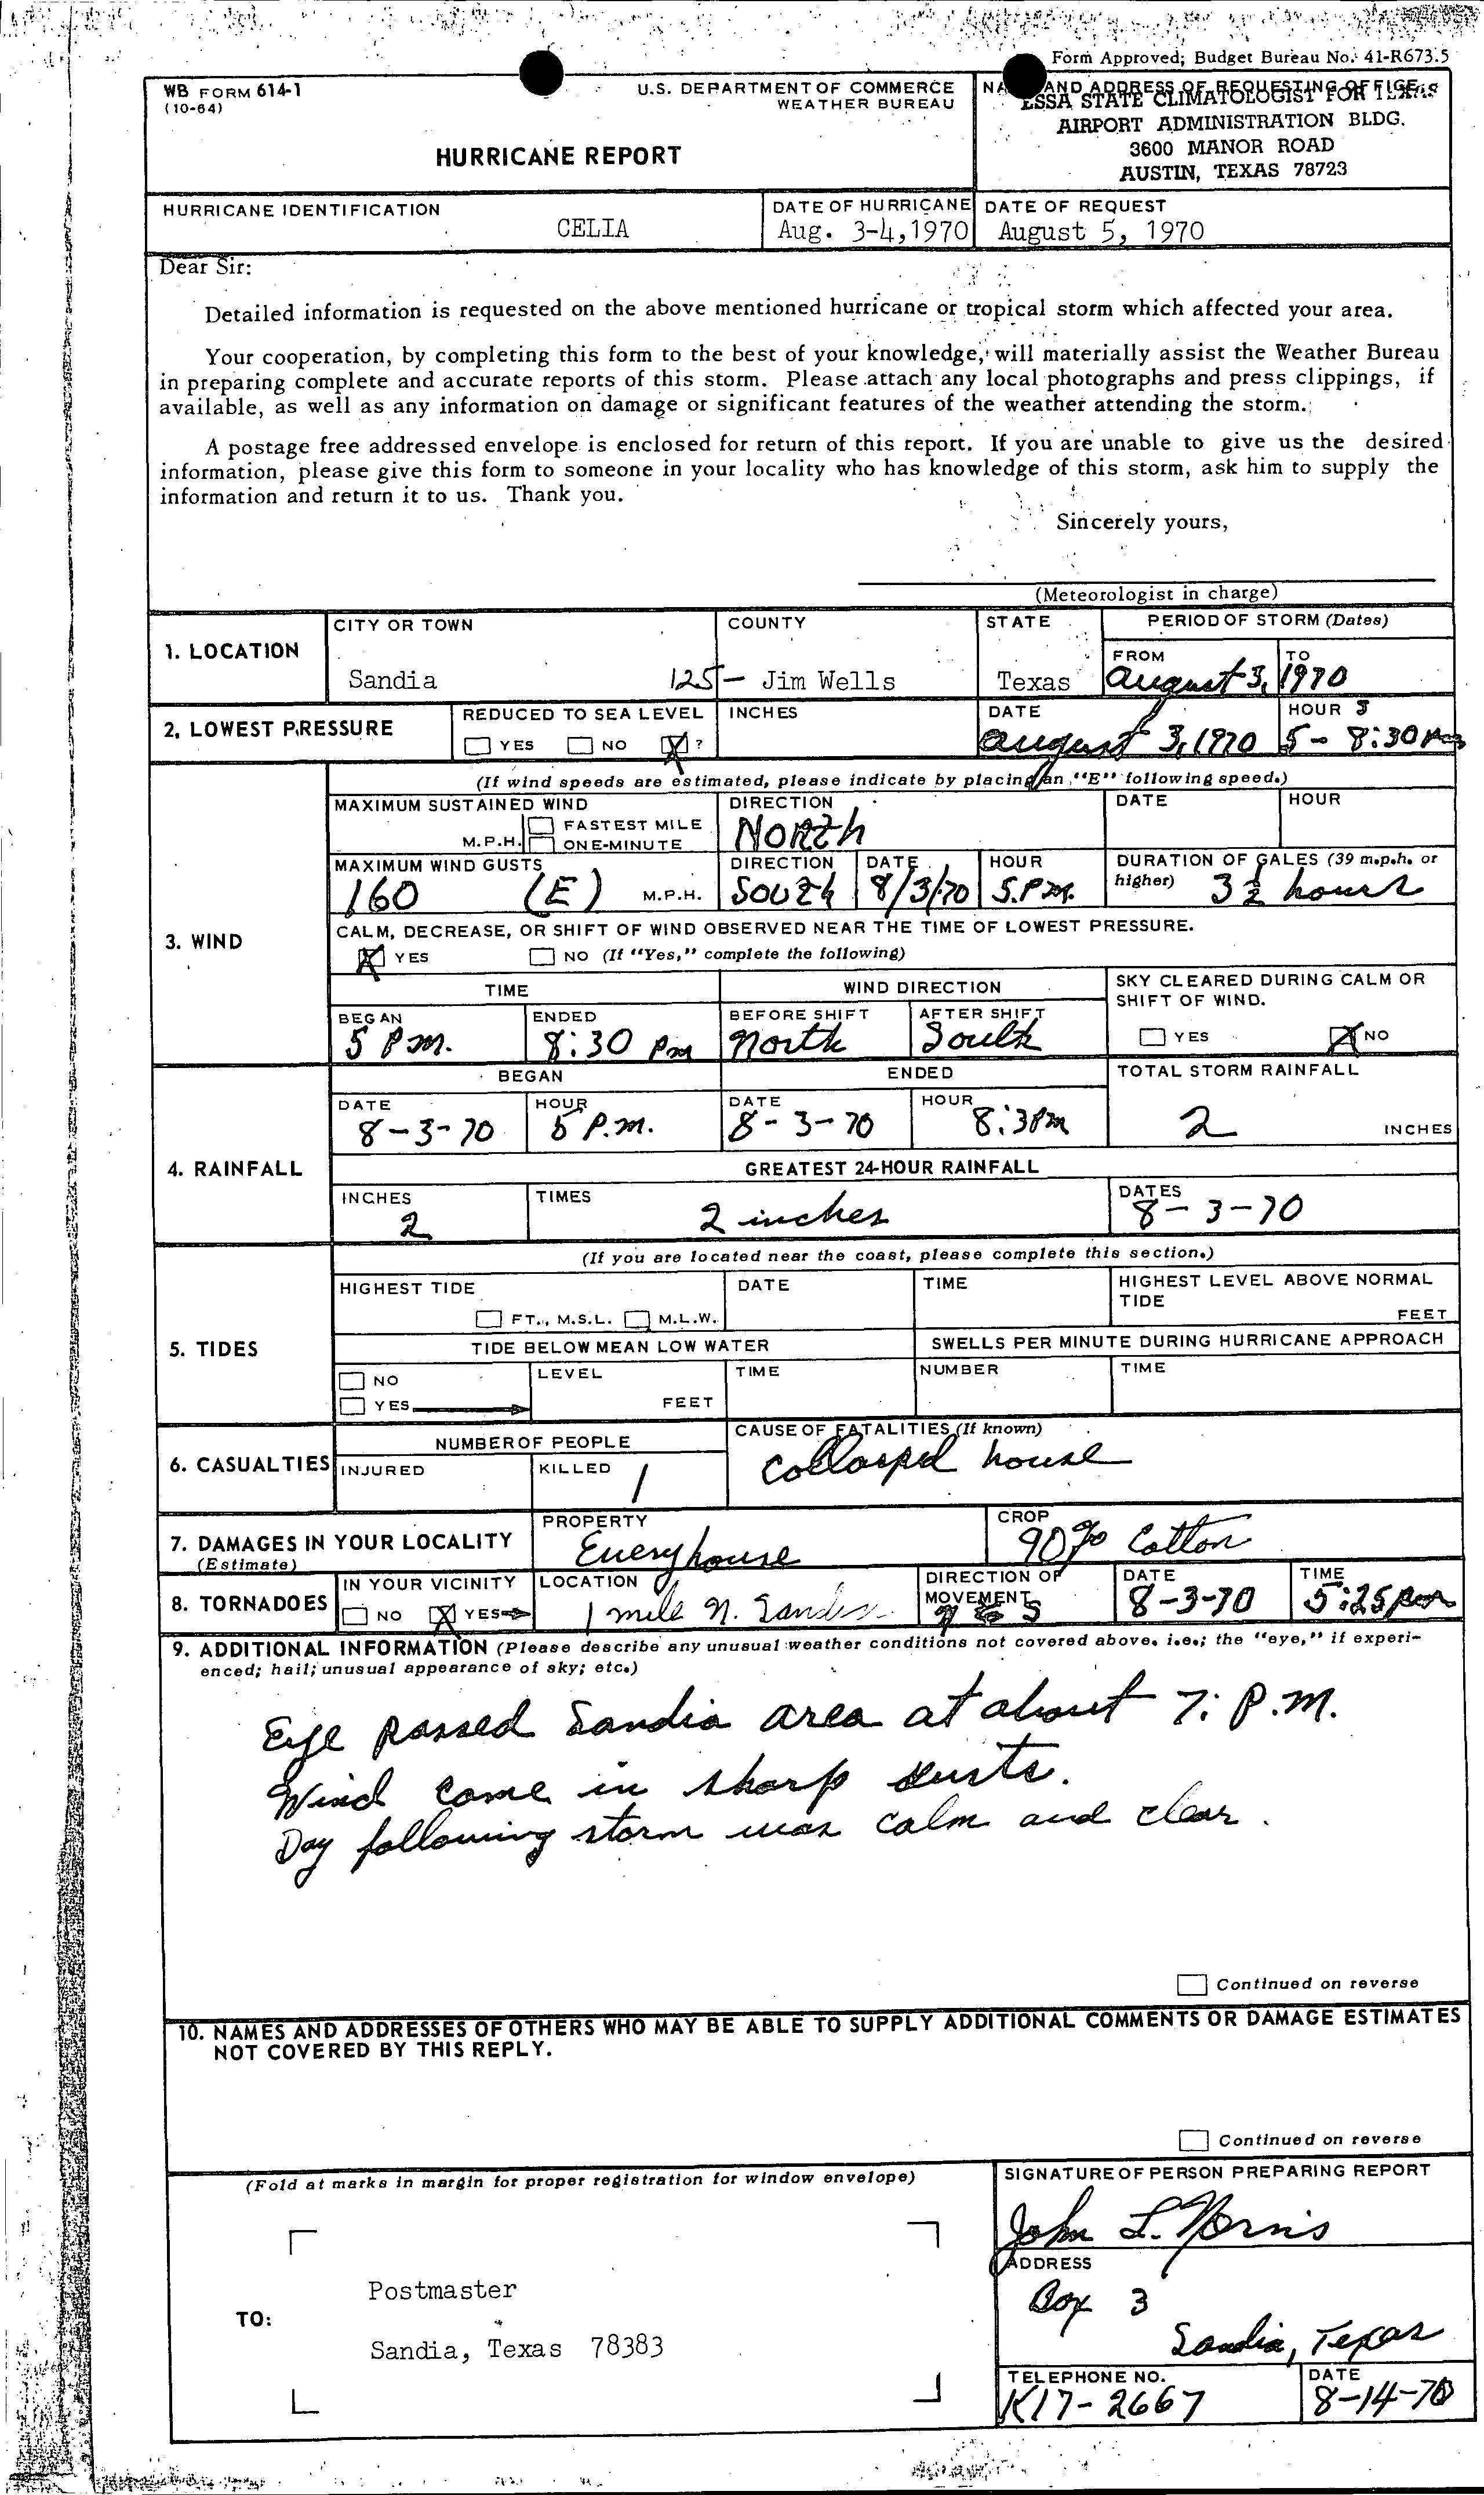 Form Approved; Budget Bureau No. 41-R673.5
WB FORM 614-1
(10-64)
U.S. DEPARTMENT OF COMMERCE
WEATHER BUREAU
HURRICANE REPORT
AND ADDRESS OF REQUESTING OFFICE
ESSA STATE CLIMATOLOGIST FOR TEXAS
AIRPORT ADMINISTRATION BLDG.
3600 MANOR ROAD
AUSTIN, TEXAS 78723
HURRICANE IDENTIFICATION
CELIA
DATE OF HURRICANE
Aug. 3-4,1970
DATE OF REQUEST
August 5, 1970
Dear Sir:
Detailed information is requested on the above mentioned hurricane or tropical storm which affected your area.
Your cooperation, by completing this form to the best of your knowledge, will materially assist the Weather Bureau
in preparing complete and accurate reports of this storm. Please attach any local photographs and press clippings, if
available, as well as any information on damage or significant features of the weather attending the storm.
A postage free addressed envelope is enclosed for return of this report. If you are unable to give us the desired
information, please give this form to someone in your locality who has knowledge of this storm, ask him to supply the
information and return it to us. Thank you.
Sincerely yours,
(Meteorologist in charge)
1. LOCATION
CITY OR TOWN
Sandia
COUNTY
125 - Jim Wells
STATE
Texas
PERIOD OF STORM (Dates)
FROM
TO
August 3, 1970
2. LOWEST PRESSURE
REDUCED TO SEA LEVEL
YES NO X ?
INCHES
DATE
August 3, 1970
HOUR
5 - 8:30 
3. WIND
(If wind speeds are estimated, please indicate by placing an "E" following speed.)
MAXIMUM SUSTAINED WIND
M.P.H.
FASTEST MILE
ONE-MINUTE
DIRECTION
North
DATE
HOUR
MAXIMUM WIND GUSTS
160 (E) M.P.H.
DIRECTION
South
DATE
8/3/70
HOUR
5.P.M.
DURATION OF GALES (39 m.p.h. or
higher)
3 1/2 hours
CALM, DECREASE, OR SHIFT OF WIND OBSERVED NEAR THE TIME OF LOWEST PRESSURE.
X YES NO (If "Yes," complete the following)
TIME
WIND DIRECTION
SKY CLEARED DURING CALM OR
SHIFT OF WIND.
BEGAN
5 P.M.
ENDED
8:30 PM
BEFORE SHIFT
North
AFTER SHIFT
South
YES X NO
4. RAINFALL
BEGAN
ENDED
TOTAL STORM RAINFALL
DATE
8-3-70
HOUR
5 P.M.
DATE
8-3-70
HOUR
8:3PM
2 INCHES
GREATEST 24-HOUR RAINFALL
INCHES
2
TIMES
2 inches
DATES
8-3-70
5. TIDES
(If you are located near the coast, please complete this section.)
HIGHEST TIDE
FT., M.S.L. M.L.W.
DATE
TIME
HIGHEST LEVEL ABOVE NORMAL
TIDE
FEET
TIDE BELOW MEAN LOW WATER
SWELLS PER MINUTE DURING HURRICANE APPROACH
NO
YES
LEVEL
FEET
TIME
NUMBER
TIME
6. CASUALTIES
NUMBER OF PEOPLE
INJURED
KILLED
1
CAUSE OF FATALITIES (If known)
collasped house
7. DAMAGES IN YOUR LOCALITY
(Estimate)
PROPERTY
Every house
CROP
90% Cotton
8. TORNADOES
IN YOUR VICINITY
NO X YES
LOCATION
1 mile N. Sandia
DIRECTION OF
MOVEMENT
DATE
8-3-70
TIME
5:25 pm
9. ADDITIONAL INFORMATION (Please describe any unusual weather conditions not covered above, i.e.; the "eye," if experi-
enced; hail; unusual appearance of sky; etc.)
Eye passed Sandia area at about 7: P.M.
Wind came in sharp gusts.
Day following storm was calm and clear.
Continued on reverse
10. NAMES AND ADDRESSES OF OTHERS WHO MAY BE ABLE TO SUPPLY ADDITIONAL COMMENTS OR DAMAGE ESTIMATES
NOT COVERED BY THIS REPLY.
Continued on reverse
(Fold at marks in margin for proper registration for window envelope)
TO:
Postmaster
Sandia, Texas 78383
SIGNATURE OF PERSON PREPARING REPORT
John L. Norris
ADDRESS
Box 3
Sandia, Texas
TELEPHONE NO.
K17-2667
DATE
8-14-70